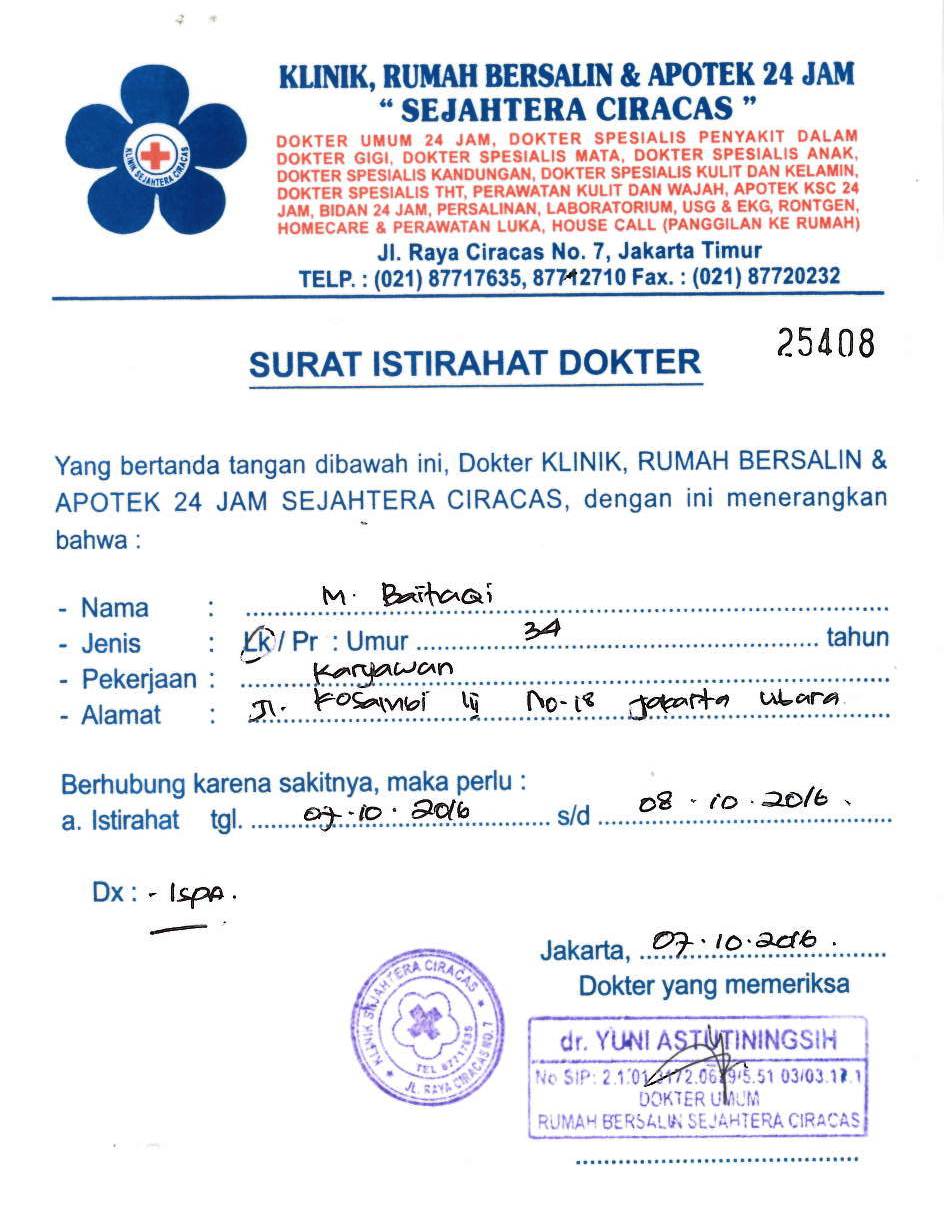 KLINIK, RUMAH BERSALIN & APOTEK 24 JAM
“ SEJAHTERA CIRACAS ”
DOKTER UMUM 24 JAM, DOKTER SPESIALIS PENYAKIT DALAM
DOKTER GIGI, DOKTER SPESIALIS MATA, DOKTER SPESIALIS ANAK,
DOKTER SPESIALIS KANDUNGAN, DOKTER SPESIALIS KULIT DAN KELAMIN,
DOKTER SPESIALIS THT, PERAWATAN KULIT DAN WAJAH, APOTEK KSC 24
JAM, BIDAN 24 JAM, PERSALINAN, LABORATORIUM, USG & EKG, RONTGEN,
HOMECARE & PERAWATAN LUKA, HOUSE CALL (PANGGILAN KE RUMAH)
Jl. Raya Ciracas No. 7, Jakarta Timur
TELP. : (021) 87717635, 87712710 Fax. : (021) 87720232
KLINIK SEJAHTERA CIRACAS
25408
SURAT ISTIRAHAT DOKTER
Yang bertanda tangan dibawah ini, Dokter KLINIK, RUMAH BERSALIN &
APOTEK 24 JAM SEJAHTERA CIRACAS, dengan ini menerangkan
bahwa :
- Nama : M. Baihaqi
- Jenis : Lk / Pr : Umur 34 tahun
- Pekerjaan : Karyawan
- Alamat : Jl. Kosambi No-18 Jakarta Utara
Berhubung karena sakitnya, maka perlu :
a. Istirahat tgl. 07.10.2016 s/d 08.10.2016.
Dx : - ISPA.
Jakarta, 07.10.2016.
Dokter yang memeriksa
KLINIK SEJAHTERA CIRACAS
TEL 87717635
JL. RAYA CIRACAS NO. 7
dr. YUNI ASTUTININGSIH
No SIP: 2.1.01
DOKTER UMUM
RUMAH BERSALIN SEJAHTERA CIRACAS